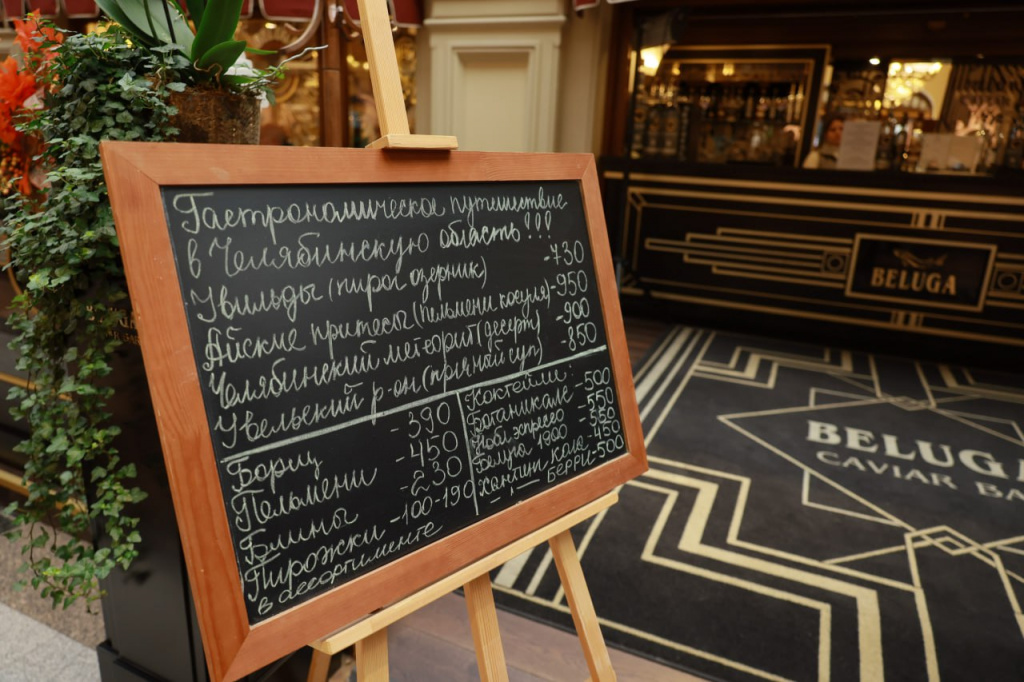 Гастрономическое путешествие
в Челябинскую область !!!
Увильды (пирог озерник) -730
Айские притесы (пельмени косуля) -950
Челябинский метеорит (десерт) -900
Увельский р-он (пряный суп) -850
Борщ -390
Пельмени -450
Блины -230
Пирожки -100-190
в ассортименте
Коктейли:
Ботаникале -500
Эспрессо -550
Белуга 1900
Хантинг кола -450
— " — Берри -500
BELUGA
BELUGA
CAVIAR BA